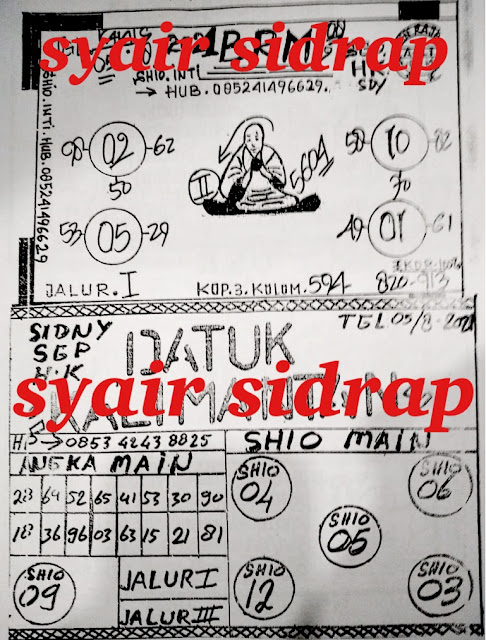 KAMIS
syair sidrap
SHIO.INTI
→ HUB.085241496629.
HK
SDY
SHIO.INTI.HUB.085241496629
98 02 62
50
53 05 29
II
5604
58 10 82
70
49 01 61
JALUR.I
KOP.3.KOLOM.594
820-913
TEL 05/8-2021
SIDNY
SGP
H.K
DATUK
KALIMANTAN
syair sidrap
0853 4243 8825
SHIO MAIN
ANGKA MAIN
28 64 52 65 41 53 30 90
18 36 96 03 63 15 21 81
SHIO
04
SHIO
06
SHIO
05
SHIO
09
JALUR I
JALUR III
SHIO
12
SHIO
03